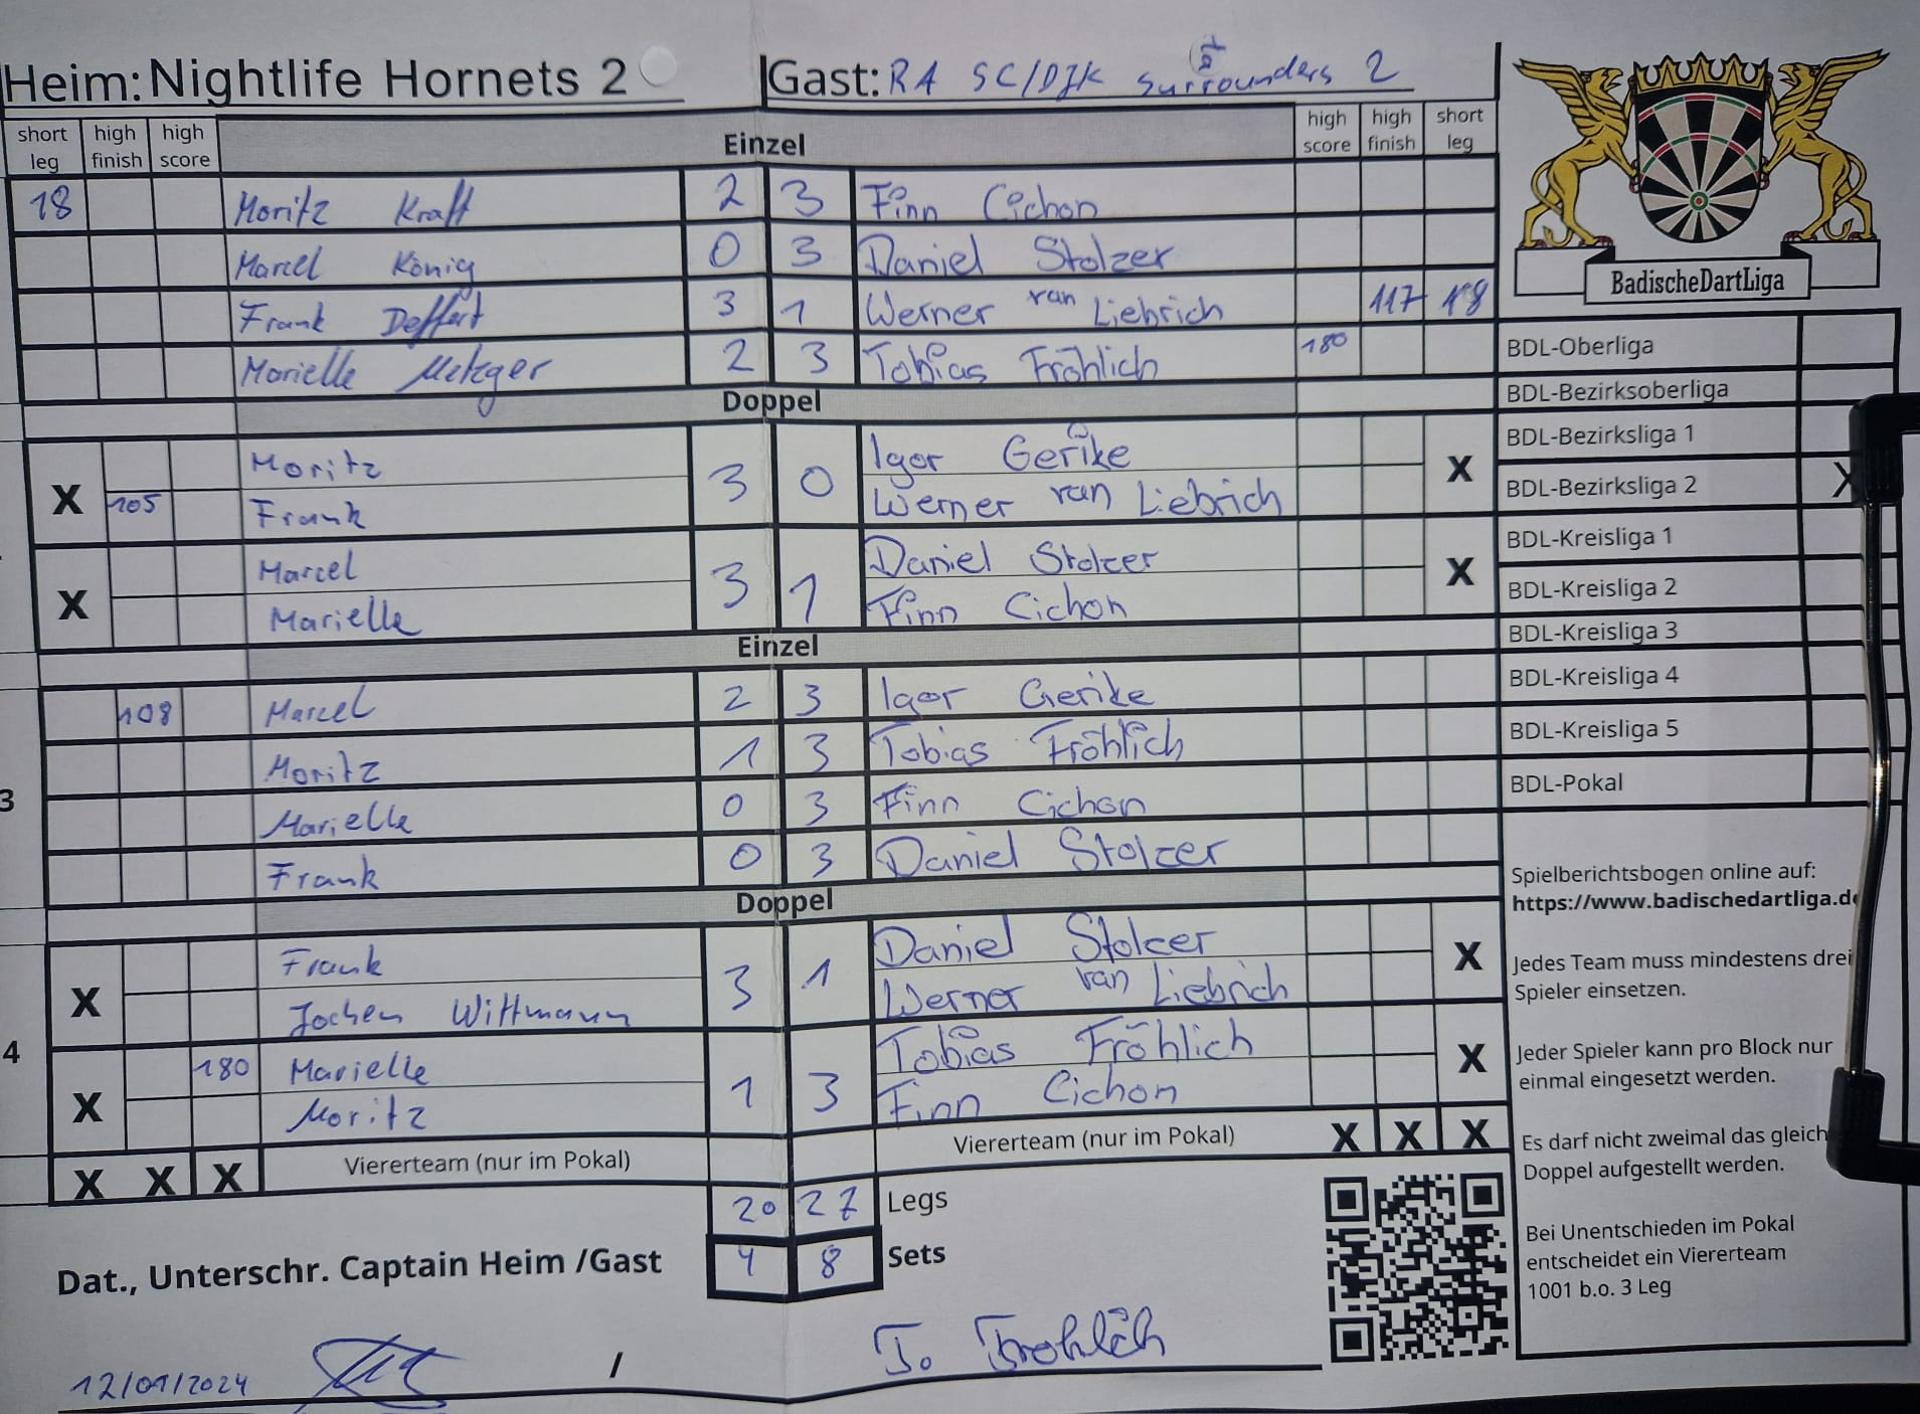 Heim: Nightlife Hornets 2 Gast: RA SC/DJK Surrounders 2
short leg high finish high score Einzel high score high finish short leg
18 Moritz Kraft 2 3 Finn Cichon
Marcel König 0 3 Daniel Stolzer
Frank Deffert 3 1 Werner van Liebrich 117 18
Marielle Metzger 2 3 Tobias Fröhlich 180
Doppel
X Moritz 3 0 Igor Gerike X
105 Frank Werner van Liebrich
X Marcel 3 1 Daniel Stolzer X
Marielle Finn Cichon
Einzel
108 Marcel 2 3 Igor Gerike
Moritz 1 3 Tobias Fröhlich
3 Marielle 0 3 Finn Cichon
Frank 0 3 Daniel Stolzer
Doppel
X Frank 3 1 Daniel Stolzer X
Jochen Wittmann Werner van Liebrich
4 X 180 Marielle 1 3 Tobias Fröhlich X
Moritz Finn Cichon
X X X Viererteam (nur im Pokal) Viererteam (nur im Pokal) X X X
20 27 Legs
Dat., Unterschr. Captain Heim /Gast 4 8 Sets
12/01/2024 / T. Fröhlich
BadischeDartLiga
BDL-Oberliga
BDL-Bezirksoberliga
BDL-Bezirksliga 1
BDL-Bezirksliga 2 X
BDL-Kreisliga 1
BDL-Kreisliga 2
BDL-Kreisliga 3
BDL-Kreisliga 4
BDL-Kreisliga 5
BDL-Pokal
Spielberichtsbogen online auf:
https://www.badischedartliga.de
Jedes Team muss mindestens drei
Spieler einsetzen.
Jeder Spieler kann pro Block nur
einmal eingesetzt werden.
Es darf nicht zweimal das gleich
Doppel aufgestellt werden.
Bei Unentschieden im Pokal
entscheidet ein Viererteam
1001 b.o. 3 Leg